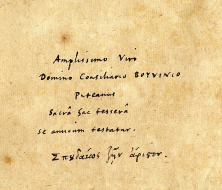 Amplissimo Viro
Domino Consiliario BOVVINIO
Puteanus
Sacrâ hac tesserâ
se amicum testatur.
Σπουδαίως ζῆν ἄριστον.